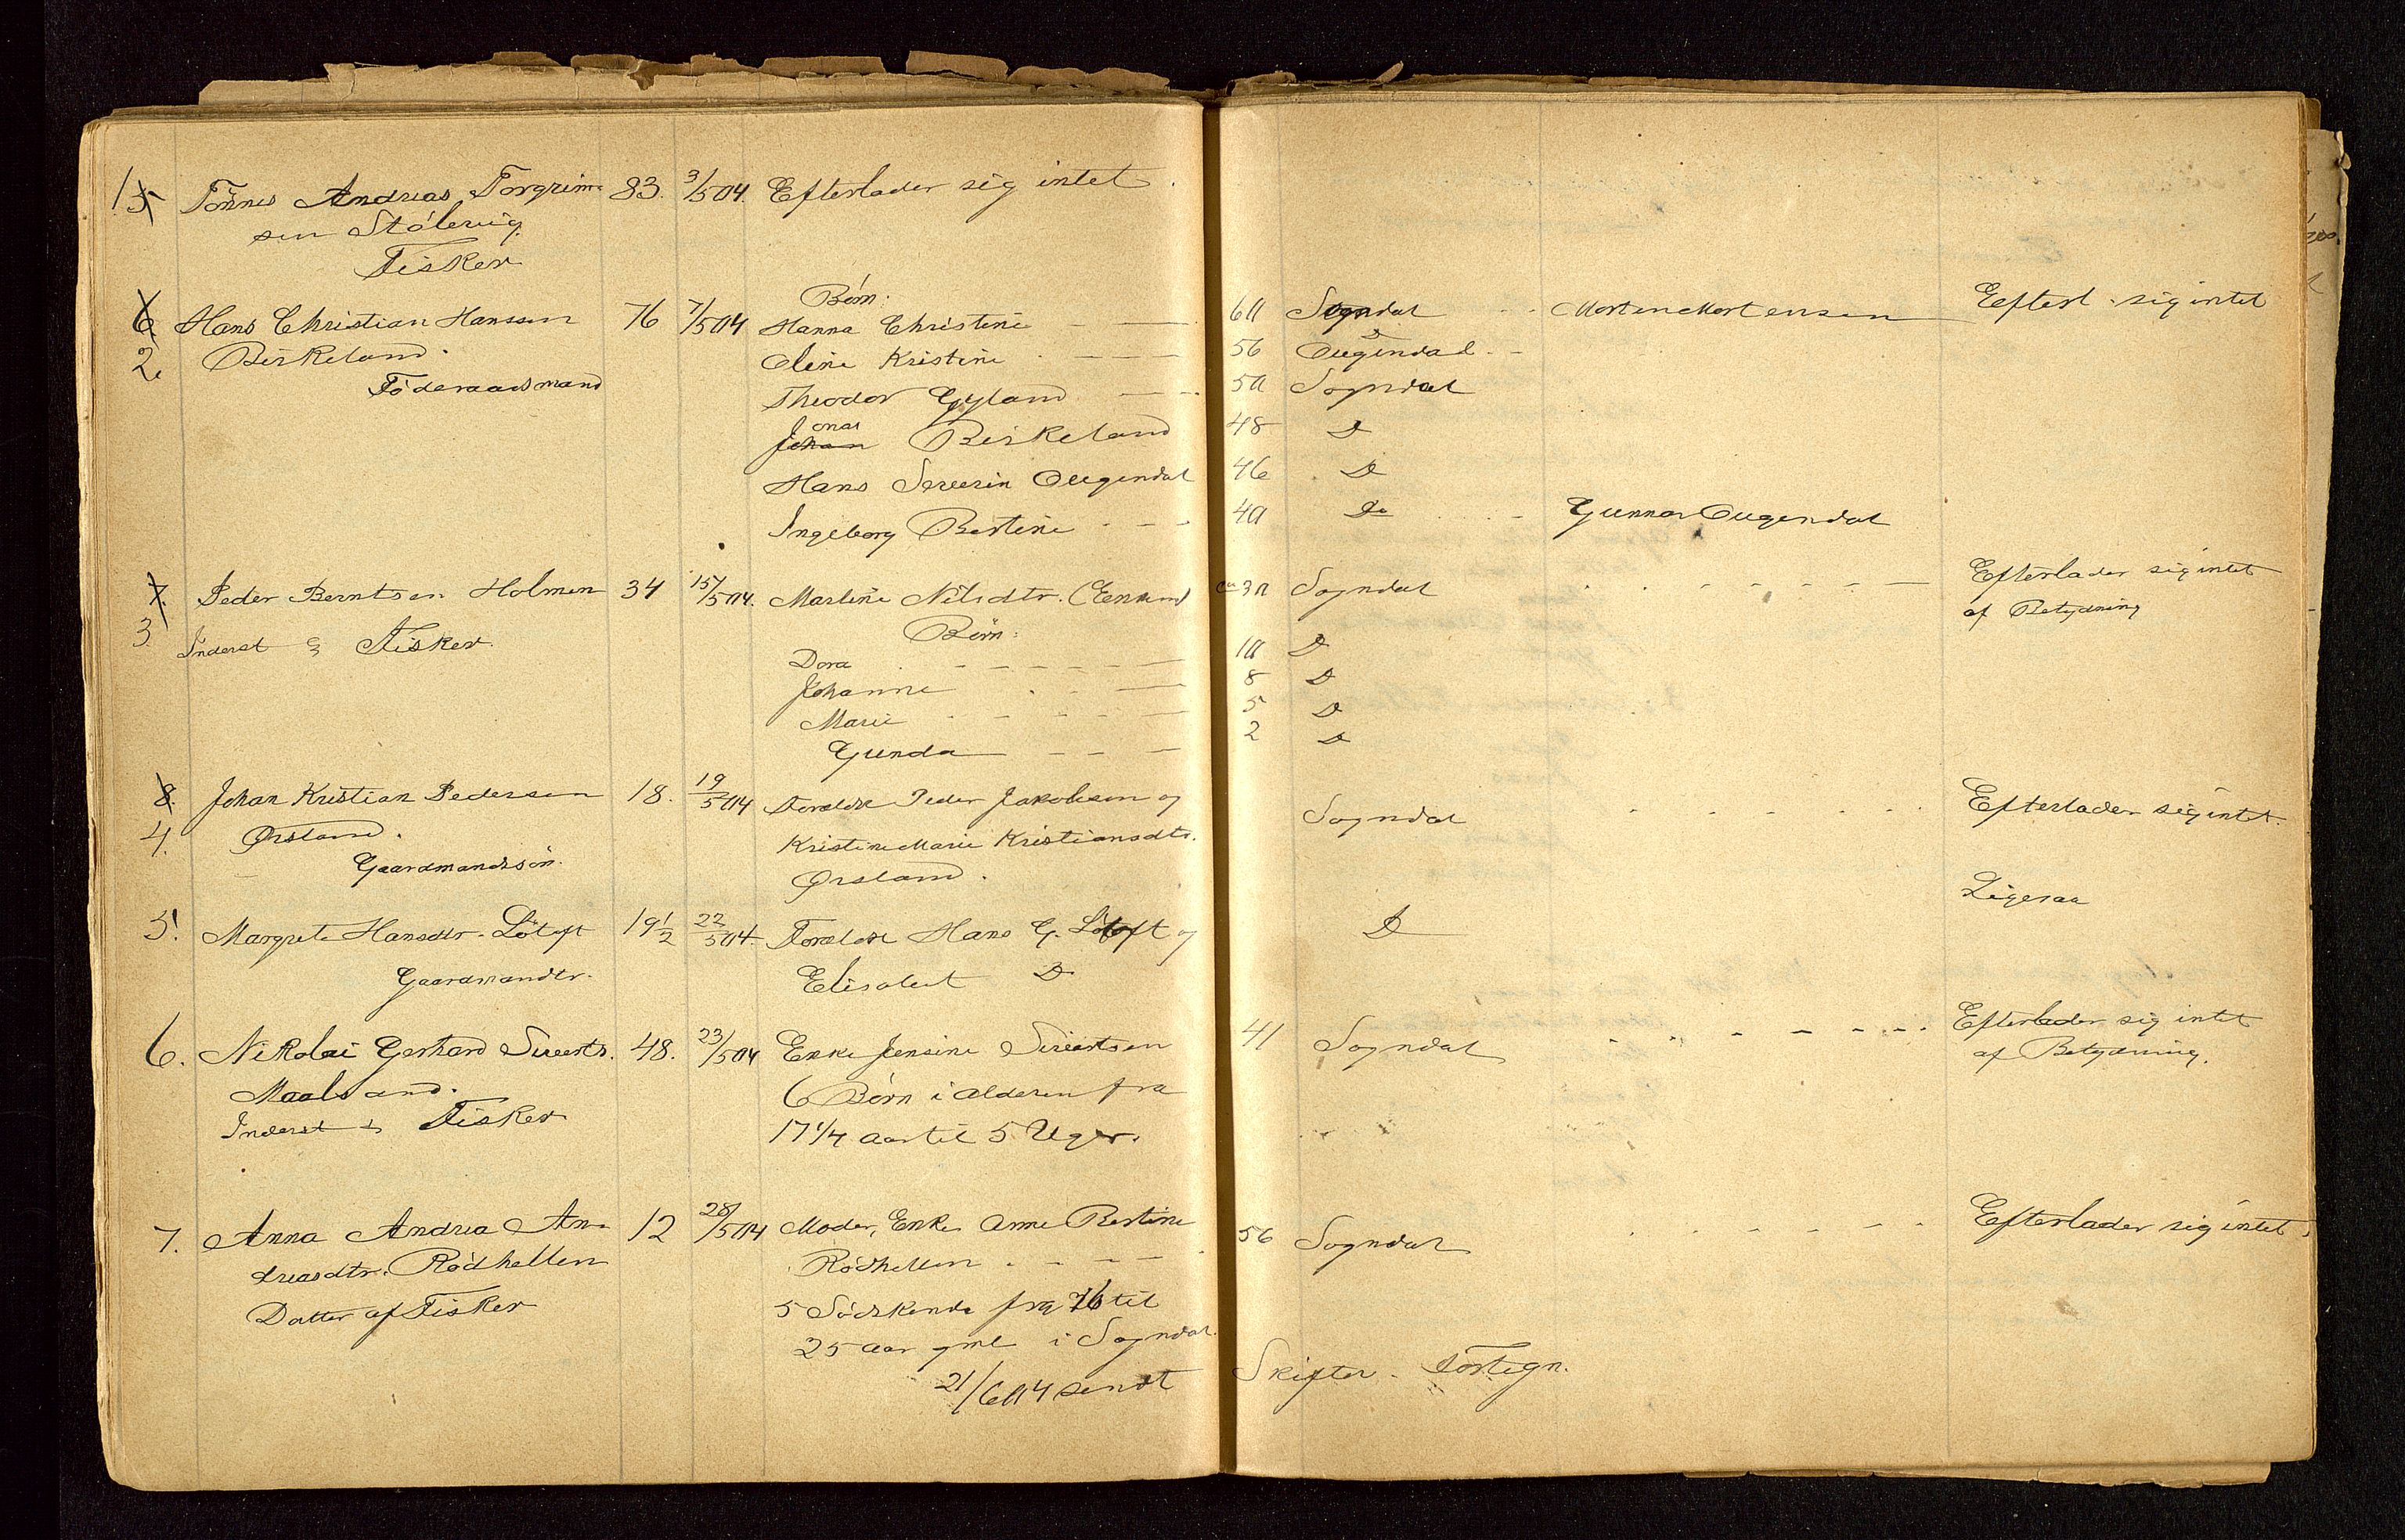 1 5 Tönnes Andreas Torgrim- 83. 3/5 04. Efterlader sig intet.
sen Stölevig.
Fisker
Børn:
6 Hans Christian Hanssen 76 7/5 04 Hanna Christine 60 Sogndal Morten Mortensen Efterl. sig intet
2. Birkeland. Oline Kristine 56 Ougendal
Föderaadsmand Theodor Gyland 50 Sogndal
Jonas Johan Birkeland 48 Do
Hans Severin Ougendal 46 Do
Ingeborg Bertine 40 Do Gunnar Ougendal
7. Peder Berntsen Holmen 34 15/5 04. Martine Nilsdtr. (Enken) ca 30 Sogndal Efterlader sig intet
af Betydning
3. Inderst & Fisker. Børn:
Dora 10 Do
Johanne 8 Do
Marie 5 Do
Gunda 2 Do
8. Johan Kristian Pedersen 18. 19/5 04 Forældre Peder Jakobsen og Sogndal Efterlader sig intet.
4. Ørsland. Kristine Marie Kristiansdtr.
Gaardmandssön. Ørsland.
5. Margrete Hansdtr. Lötoft 19 1/2 22/5 04. Forældre Hans G. Lötoft og Do Ligesaa
Gaardmandtr. Elisabet Do
6. Nikolai Gerhard Siverts. 48. 23/5 04 Enke Jensine Sivertsen 41 Sogndal Efterlader sig intet
af Betydning.
Maalsand. 6 Børn i Alderen fra
Inderst & Fisker 17 1/4 Aar til 5 Uger.
7. Anna Andrea An- 12 28/5 04 Moder, Enke Anne Bertine 56 Sogndal Efterlader sig intet
dreasdtr. Rödhellen Rödhellen
Datter af Fisker 5 Södskende fra 16 til
25 Aar gml i Sogndal.
21/6 04 sendt Skifter. Fortegn.